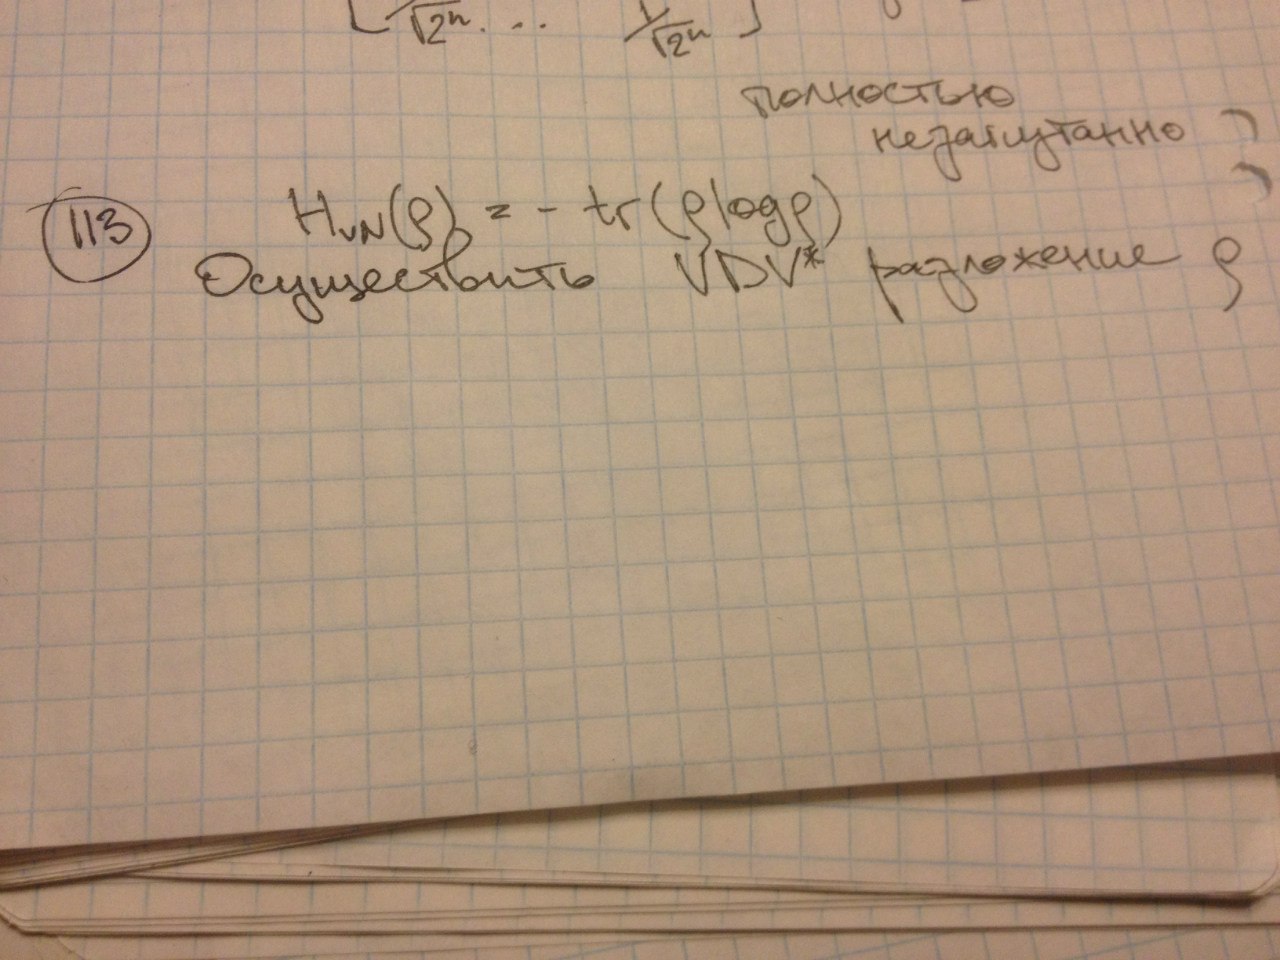 [1/√2ⁿ ... 1/√2ⁿ]
полностью
незапутанно
113 H_vN(ρ) = - tr(ρ log ρ)
Осуществить VDV* разложение ρ